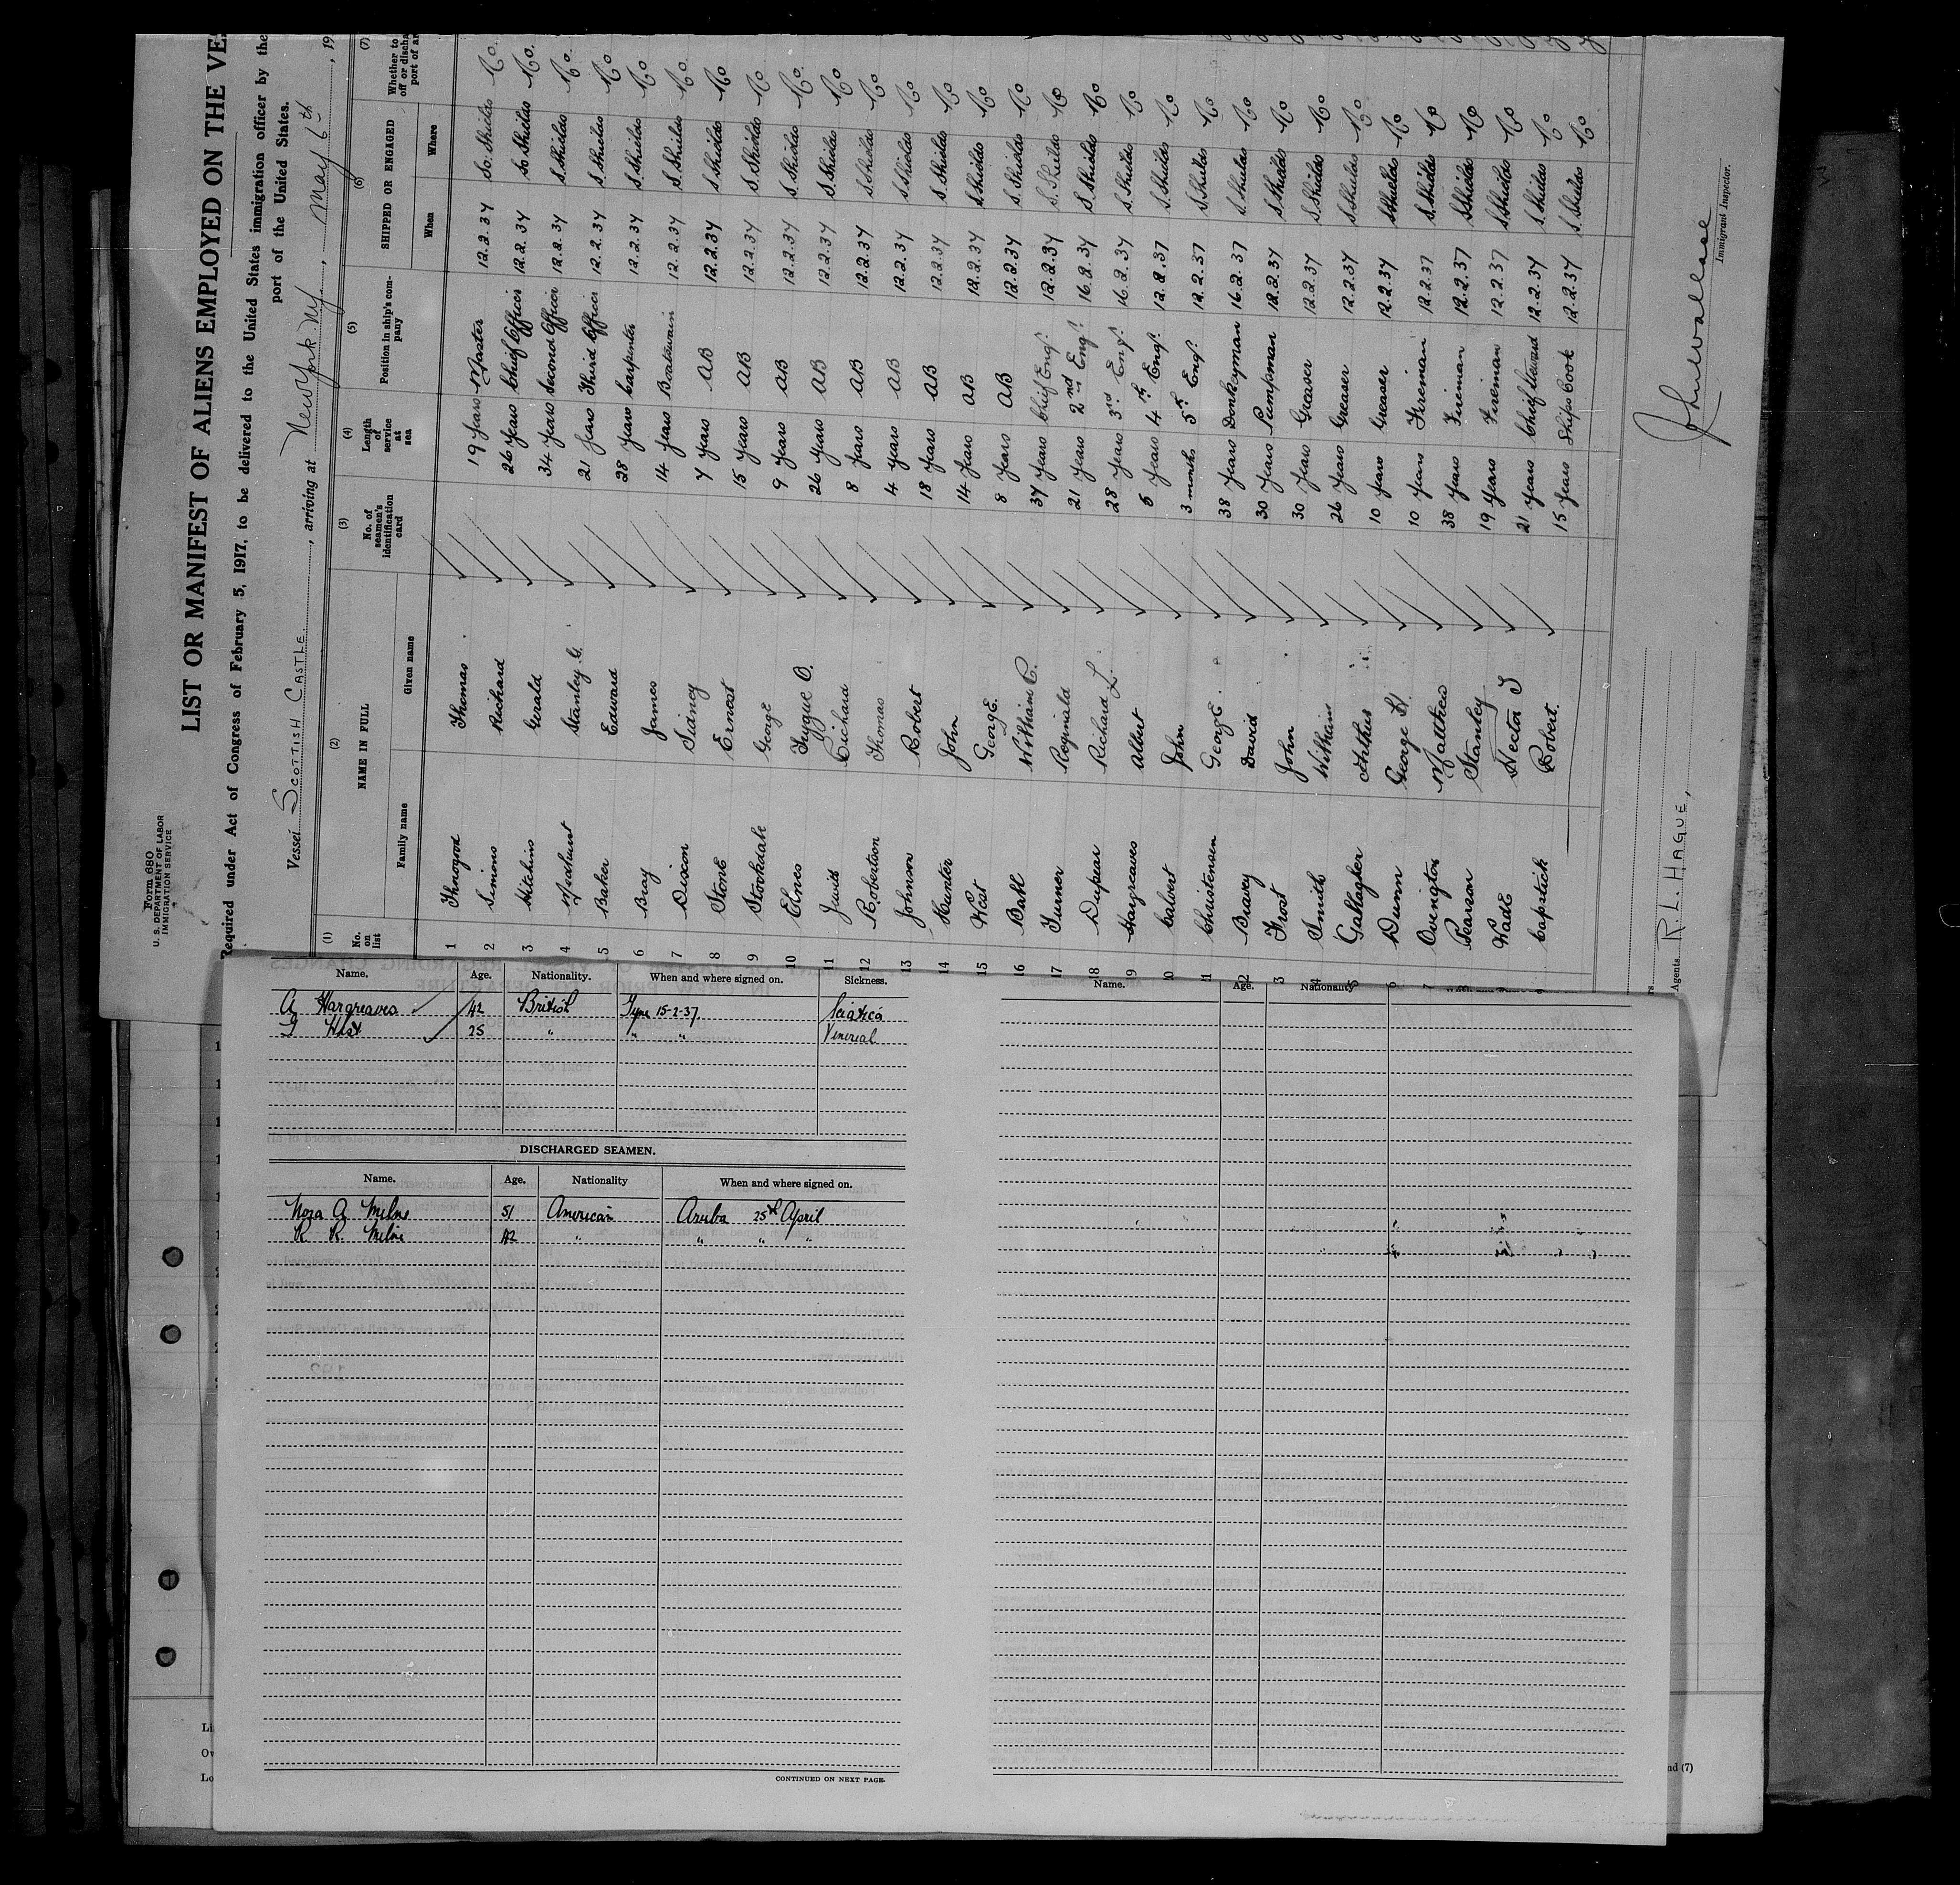 Form 680
U. S. DEPARTMENT OF LABOR
IMMIGRATION SERVICE
LIST OR MANIFEST OF ALIENS EMPLOYED ON THE VE
Required under Act of Congress of February 5, 1917, to be delivered to the United States immigration officer by the
port of the United States.
Vessel SCOTTISH CASTLE, arriving at New York NY, May 6th, 19
(1) (2) (3) (4) (5) (6) (7)
No. on list NAME IN FULL No. of seamen's identification card Length of service at sea Position in ship's company SHIPPED OR ENGAGED Whether to
off or discha
port of ar
Family name Given name When Where
1 Thorogood Thomas 19 Years Master 12.2.37 So. Shields No.
2 Simons Richard 26 Years Chief Officer 12.2.37 So Shields No.
3 Hitchins Gerald 34 Years Second Officer 12.2.37 S. Shields No.
4 Stanley G. 21 Years Third Officer 12.2.37 S. Shields No
5 Baker Edward 28 Years Carpenter 12.2.37 S. Shields No
6 Bray James 14 Years Boatswain 12.2.37 S. Shields No.
7 Dixon Sidney 7 Years AB 12.2.37 S. Shields No
8 Stone Ernest 15 Years AB 12.2.37 S. Shields No
9 Stockdale George 9 Years AB 12.2.37 S. Shields No.
10 26 Years AB 12.2.37 S. Shields No
11 Richard 8 Years AB 12.2.37 S. Shields No
12 Robertson Thomas 4 Years AB 12.2.37 S. Shields No
13 Johnson Robert 18 Years AB 12.2.37 S. Shields No
14 Hunter John 14 Years AB 12.2.37 S. Shields No
15 George. 8 Years AB 12.2.37 S. Shields No
16 Dahl William C. 37 Years Chief Engr. 12.2.37 S. Shields No
17 Turner Reginald 21 Years 2nd Engr. 16.2.37 S. Shields No
18 Richard L. 28 Years 3rd Engr. 16.2.37 S. Shields No
19 Hargreaves Albert 5 Years 4th Engr. 12.2.37 S. Shields No
0 Calvert John 3 months 5th Engr. 12.2.37 S. Shields No
1 Christensen George. 38 Years Donkeyman 16.2.37 S. Shields No
2 David 30 Years Pumpman 12.2.37 S. Shields No
3 Frost John 30 Years Greaser 12.2.37 S. Shields No
4 Smith William 26 Years Greaser 12.2.37 S. Shields No
5 Gallagher Arthur 10 Years Greaser 12.2.37 S. Shields No
6 Dunn George H. 10 Years Fireman 12.2.37 S. Shields No
7 Ovington Matthew 38 Years Fireman 12.2.37 S. Shields No
Pearson Stanley 19 Years Fireman 12.2.37 S. Shields No
Wade Hector J 21 Years Chief Steward 12.2.37 S. Shields No
Capstick Robert. 15 Years Ships Cook 12.2.37 S. Shields No
Agents. R. L. HAGUE,
John Wallace
Immigrant Inspector.
Name. Age. Nationality. When and where signed on. Sickness.
A Hargreaves 42 British Tyne 15-2-37. Sciatica
25 " " " Venereal
DISCHARGED SEAMEN.
Name. Age. Nationality When and where signed on.
Nora A Milne 51 American Aruba 25th April
R. R. Milne 42 " " " "
CONTINUED ON NEXT PAGE.
Name. Age. Nationality
Li
Ow
Lo
nd (7)